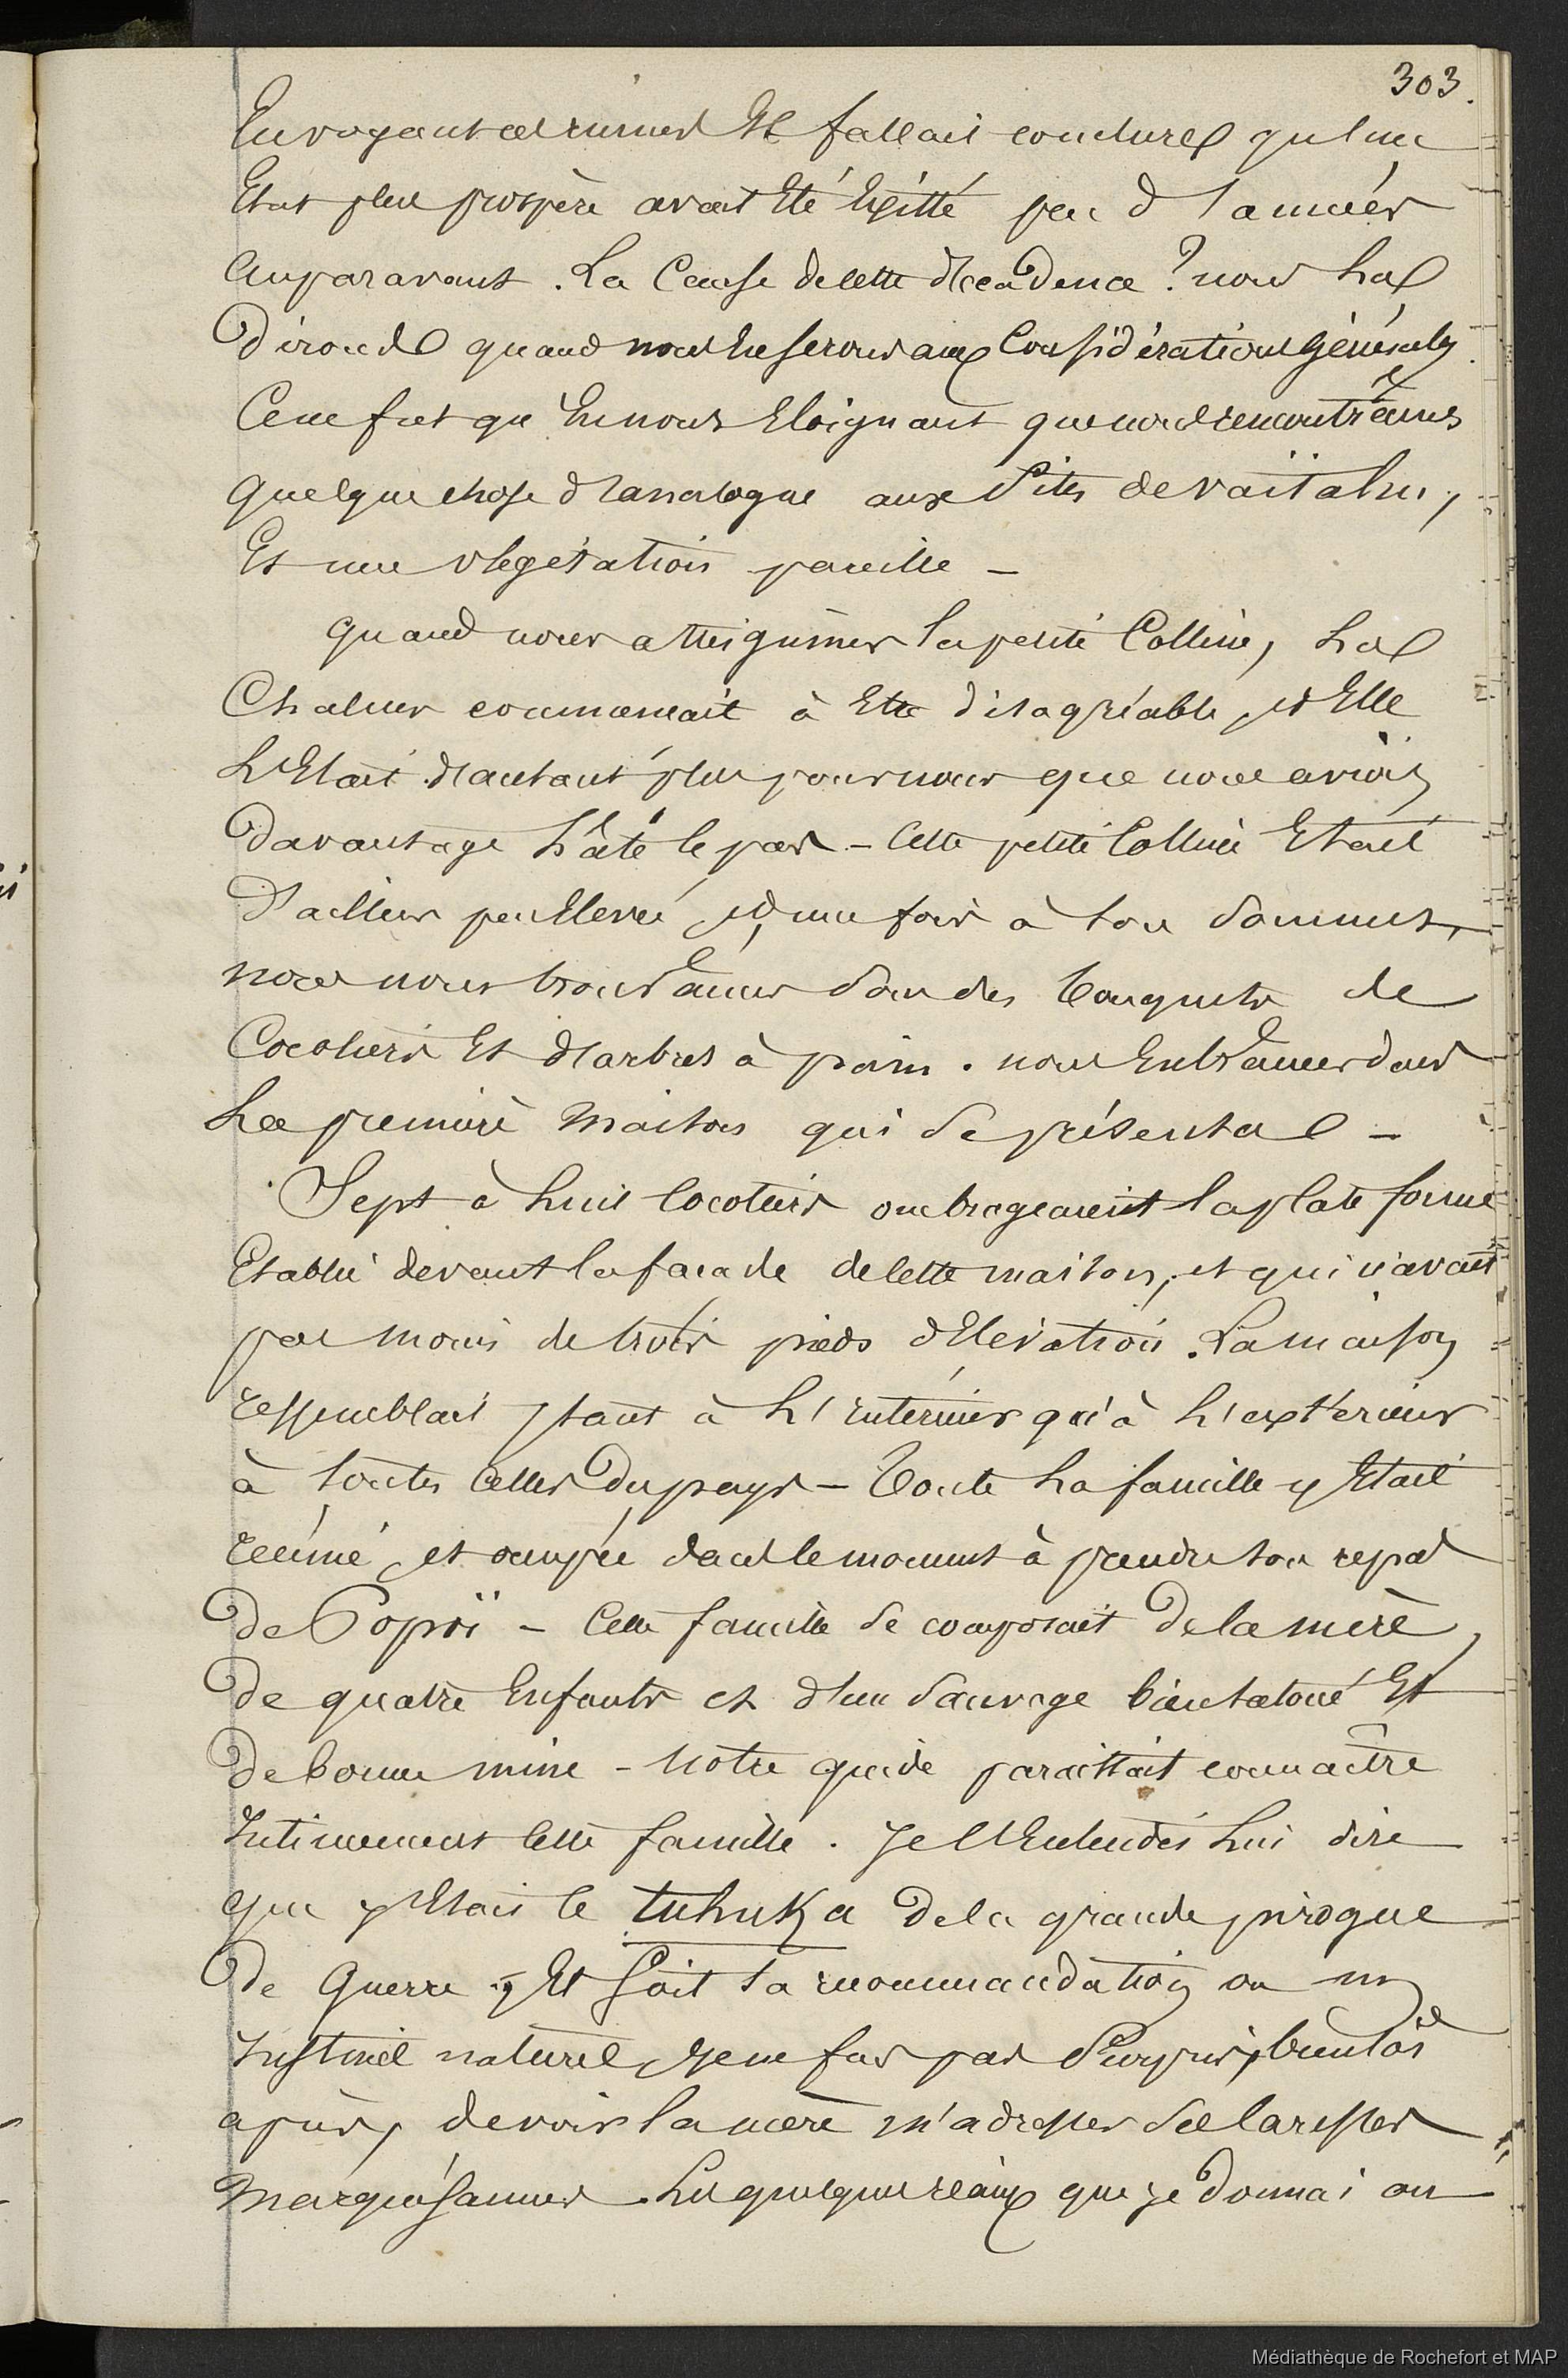 303.
En voyant ces ruines Il fallait conclure qu'un
Etat plus prospère avait Eté Existé peu d'années
Auparavant. La Cause de cette décadence? nous La
Dirons quand nous En serons aux Considérations générales.
Ce ne fut qu'En nous Eloignant que nous rencontrâmes
quelque chose d'analogue aux Sites de vaïtahu,
Et une végétation pareille –
quand nous atteignîmes la petite Colline, La
Chaleur commencait à Etre désagréable, et Elle
L'Etait d'autant plus pour nous que nous avions
Davantage hâté le pas – Cette petite Colline Etait
D'ailleurs peu Elevée, et, une fois à son Sommet,
nous nous trouvâmes Sous des bouquets de
Cocotiers Et d'arbres à pain. nous Entrâmes dans
La première Maison qui Se présenta –
Sept à huit Cocotiers ombrageaient la plate forme
Etablie devant la facade de cette maison, et qui n'avait
pas moins de trois pieds d'Elévation. La maison
ressemblait, tant à L'intérieur qu'à L'extérieur
à toutes Celles Du pays – Toute La famille y Etait
réunie, et occupée dans le moment à prendre son repas
De Popoï – Cette famille Se composait De la mère,
De quatre Enfants et d'un Sauvage bien tatoué Et
De bonne mine – Notre guide paraissait connaître
Intimement Cette famille. Je l'Entendis Lui dire
que j'Etais le tuhuka De la grande pirogue
De Guerre, Et Soit sa recommandation ou un
Instinct naturel, Je ne fus pas Surpris, bientôt
après, de voir la mère m'adresser Ses caresses
Marquisannes. Les quelques réaux que je Donnai au